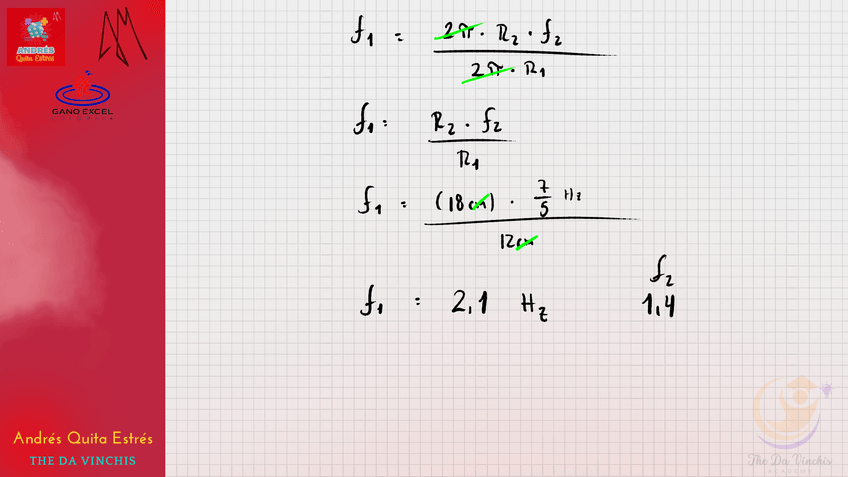 ANDRÉS
Quita Estrés
GANO EXCEL
f₁ = 2π · R₂ · f₂ / 2π · R₁
f₁ = R₂ · f₂ / R₁
f₁ = (18 cm) · 7/5 Hz / 12 cm
f₂
f₁ = 2,1 Hz 1,4
Andrés Quita Estrés
THE DA VINCHIS
The Da Vinchis
ACADEMY